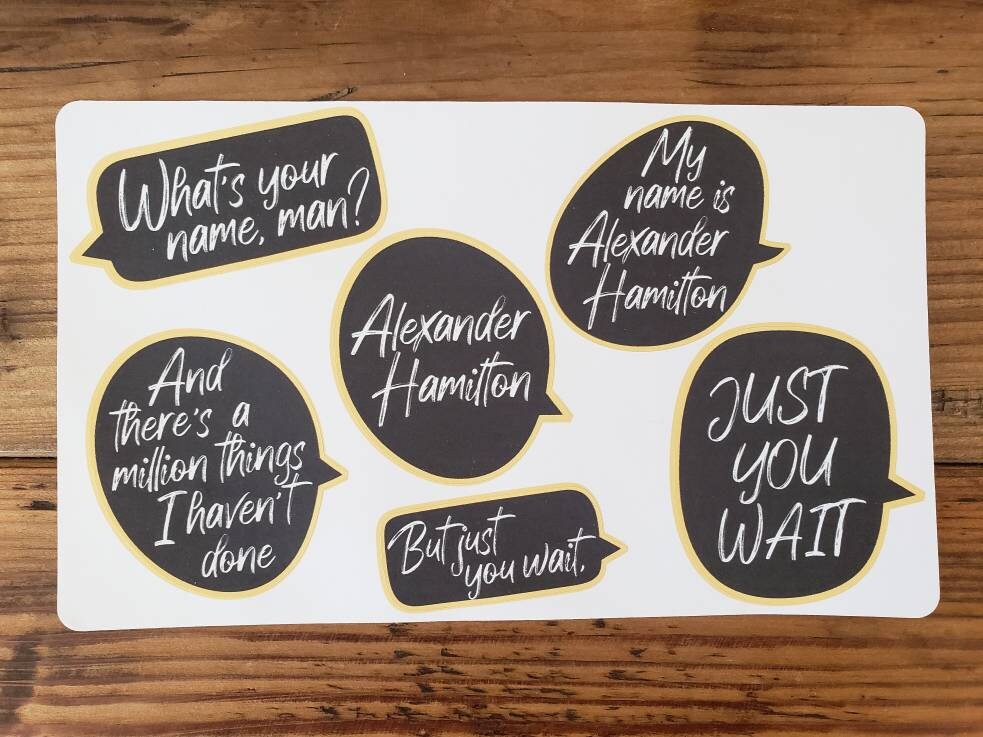 What's your
name, man?
My
name is
Alexander
Hamilton
Alexander
Hamilton
And
there's a
million things
I haven't
done
But just
you wait,
JUST
YOU
WAIT